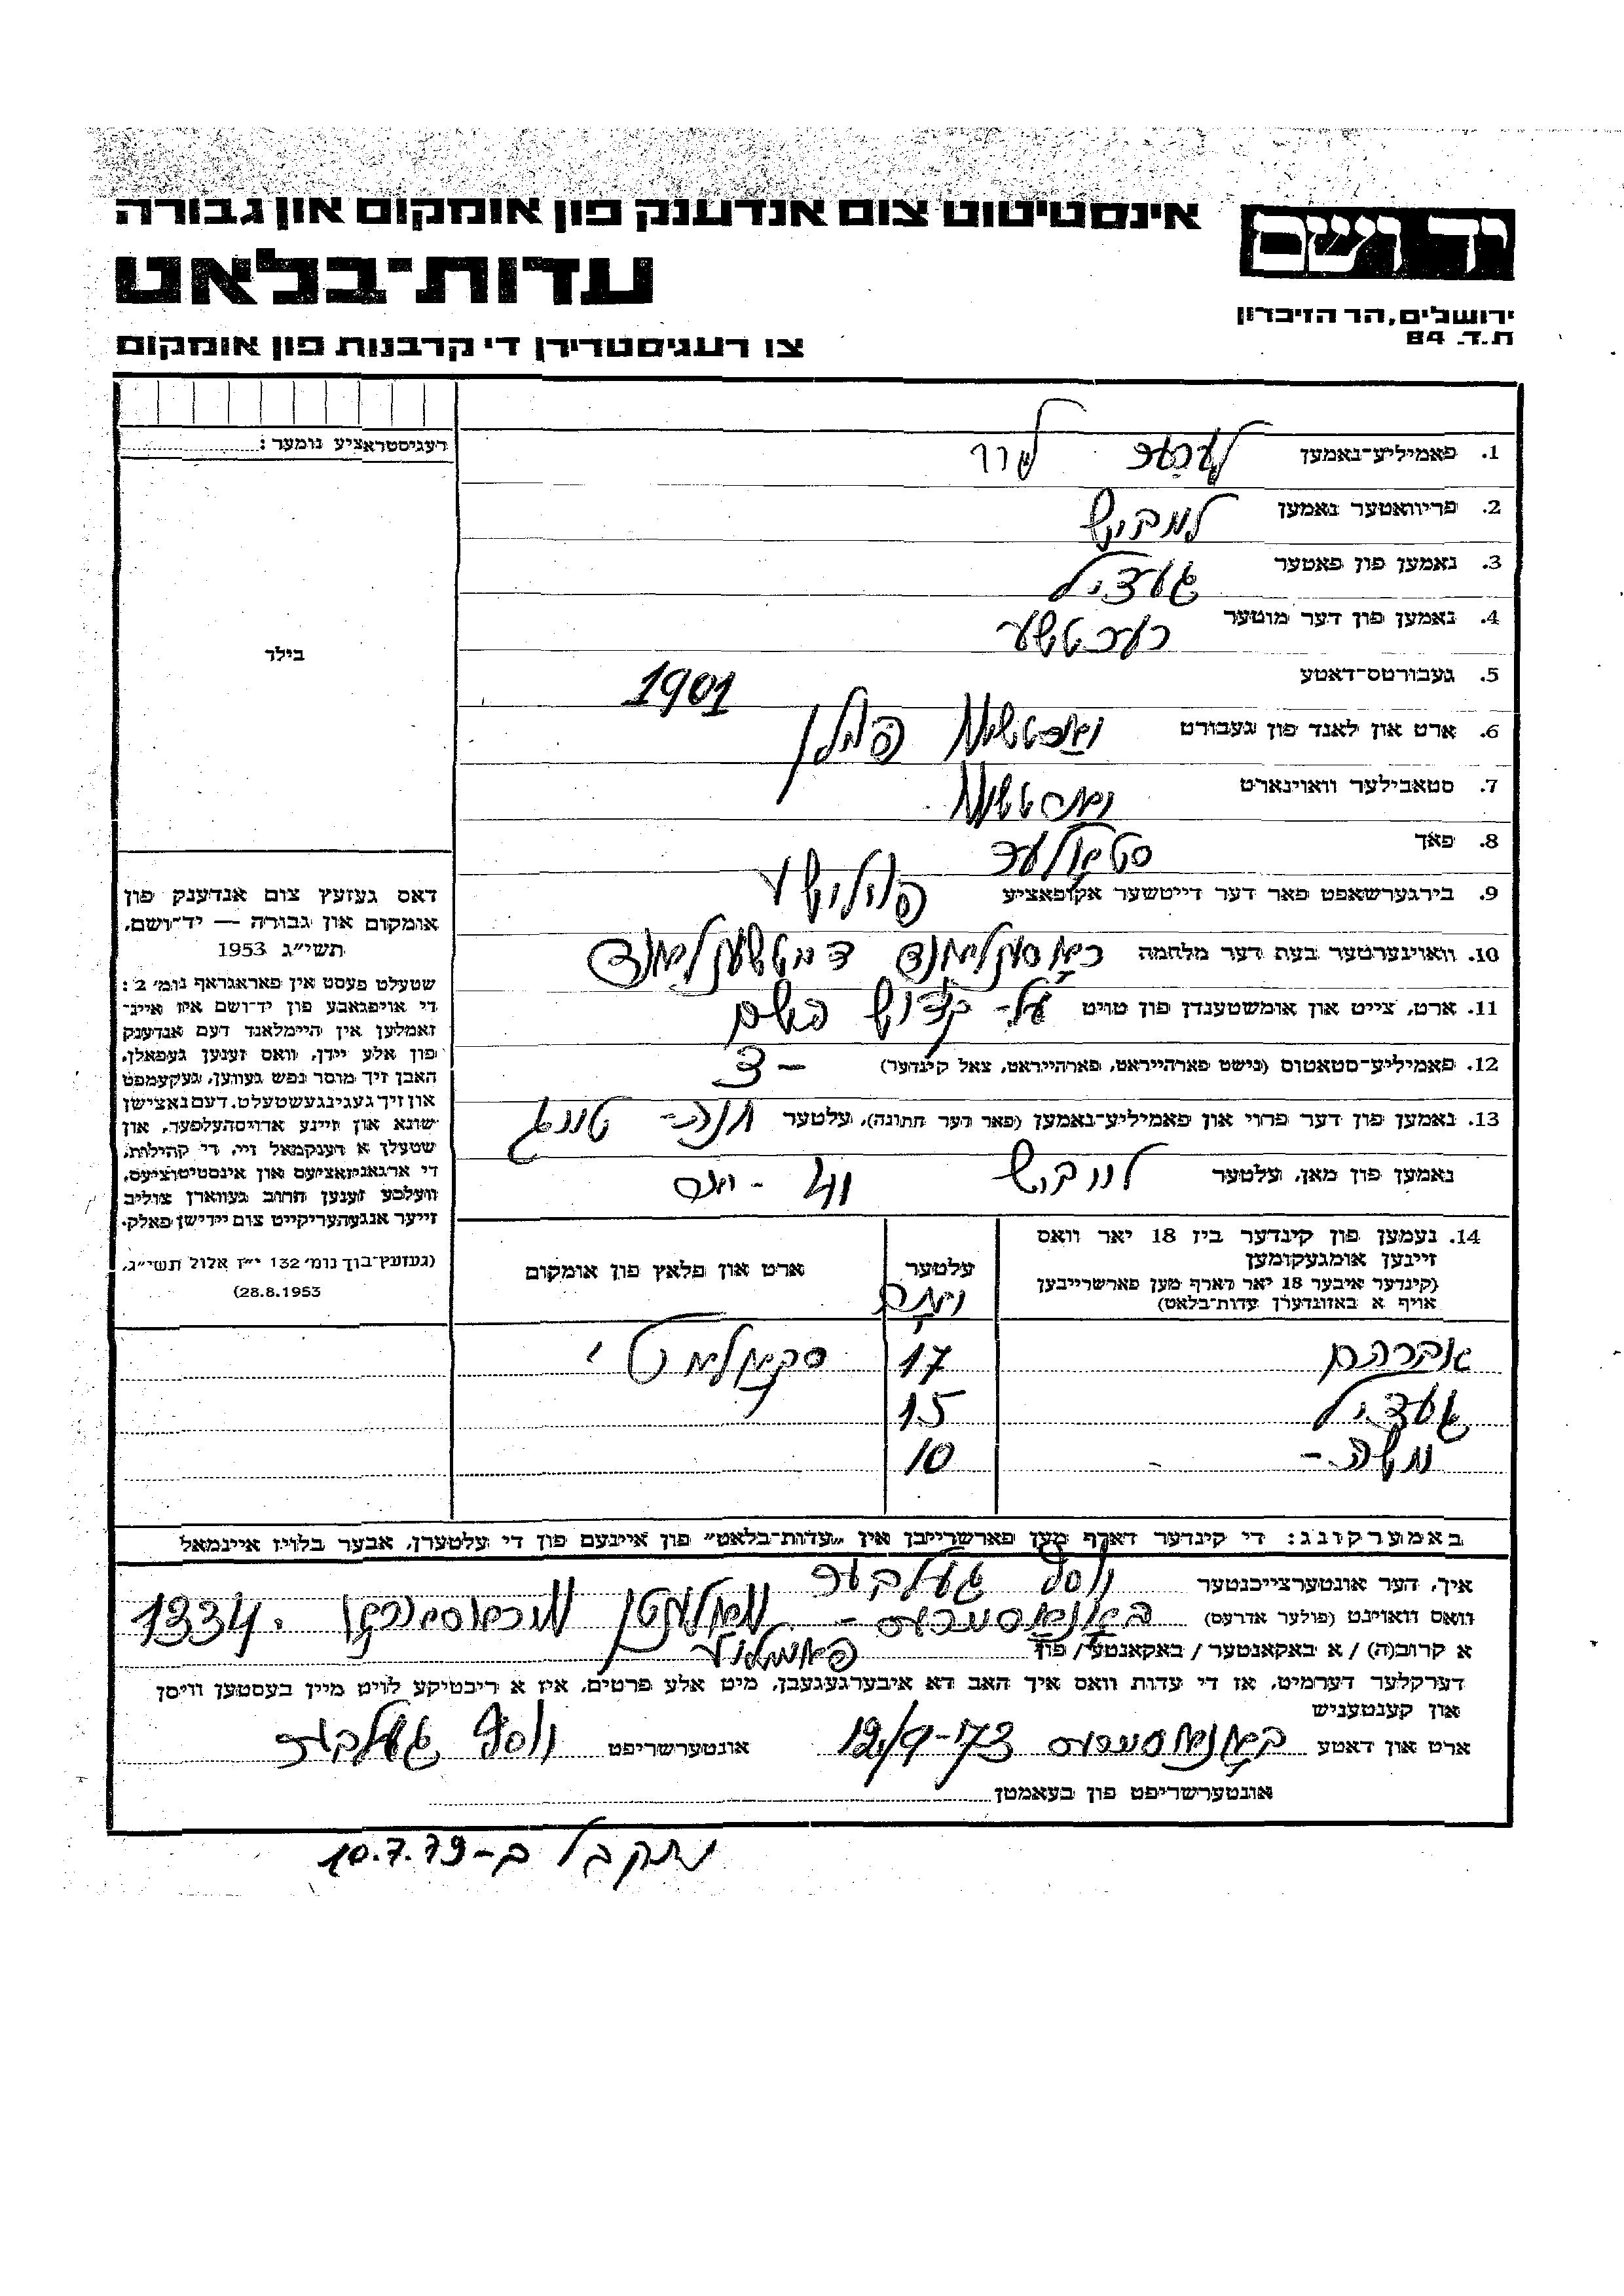 אינסטיטוט צום אנדענק פון אומקום און גבורה
יד ושם
עדות-בלאט
ירושלים, הר הזיכרון
ת.ד. 84
צו רעגיסטרירן די קרבנות פון אומקום
רעגיסטראציע נומער:
בילד
1. פאמיליע-נאמען
2. פריוואטער נאמען לייביש
3. נאמען פון פאטער געציל
4. נאמען פון דער מוטער
5. געבורטס-דאטע 1901
6. ארט און לאנד פון געבורט פוילן
7. סטאבילער וואוינארט
8. פאך סטאליער
9. בירגערשאפט פאר דער דייטשער אקופאציע פוילישע
10. וואוינערטער בעת דער מלחמה רוסלאנד דייטשענלאנד
11. ארט, צייט און אומשטענדן פון טויט על-קדוש השם
12. פאמיליע-סטאטוס (נישט פארהייראט, פארהייראט, צאל קינדער) -3
13. נאמען פון דער פרוי און פאמיליע-נאמען (פאר דער חתונה), עלטער חנה-
נאמען פון מאן, עלטער לייביש 41 - יאר
14. נעמען פון קינדער ביז 18 יאר וואס
זיינען אומגעקומען
(קינדער איבער 18 יאר דארף מען פארשרייבן
אויף א באזונדערן עדות-בלאט)
עלטער
יאר
ארט און פלאץ פון אומקום
אברהם 17
געציל 15
משה- 10
דאס געזעץ צום אנדענק פון
אומקום און גבורה — יד-ושם,
תשי"ג 1953
שטעלט פעסט אין פאראגראף נומ' 2:
די אויפגאבע פון יד-ושם איז איינ-
זאמלען אין היימלאנד דעם אנדענק
פון אלע יידן, וואס זענען געפאלן,
האבן זיך מוסר נפש געווען, געקעמפט
און זיך געגינגעשטעלט, דעם נאצישן
שונא און זיינע ארויסהעלפער, און
שטעלן א דענקמאל זיי, די קהילות,
די ארגאניזאציעס און אינסטיטוציעס,
וועלכע זענען חרוב געווארן צוליב
זייער אנגעהעריקייט צום יידישן פאלק.
(געזעץ-בוך נומ' 132 י"ז אלול תשי"ג,
28.8.1953)
באמערקונג: די קינדער דארף מען פארשרייבן אין "עדות-בלאט" פון איינעם פון די עלטערן, אבער בלויז איינמאל
איך, דער אונטערצייכנטער יוסף
וואס וואוינט (פולער אדרעס) 1334
א קרוב(ה) / א באקאנטער / באקאנטע / פון
דערקלער דערמיט, אז די עדות וואס איך האב דא איבערגעגעבן, מיט אלע פרטים, איז א ריכטיקע לויט מיין בעסטען וויסן
און קענטעניש
ארט און דאטע 12/9-73 אונטערשריפט יוסף
אונטערשריפט פון בעאמטן
נתקבל ב-10.7.79